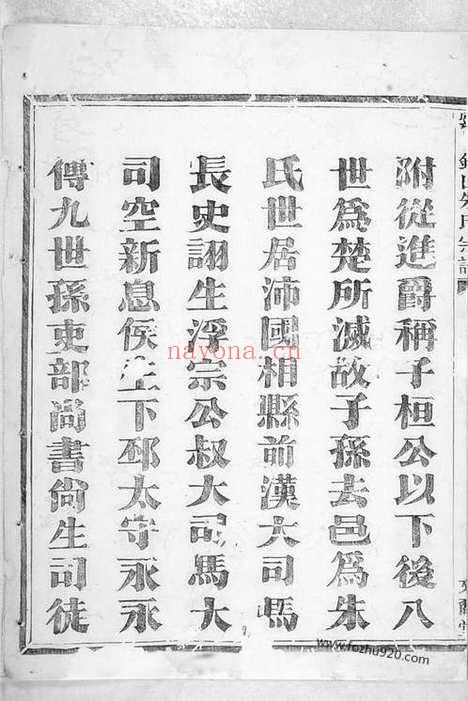 附從進爵稱子桓公以下後八
世爲楚所滅故子孫去邑爲朱
氏世居沛國相縣前漢大司馬
長史詡生浮宗公叔大司馬大
司空新息侯生下邳太守永永
傳九世孫吏部尚書尚生司徒
nayona.cn
www.fozhu920.com